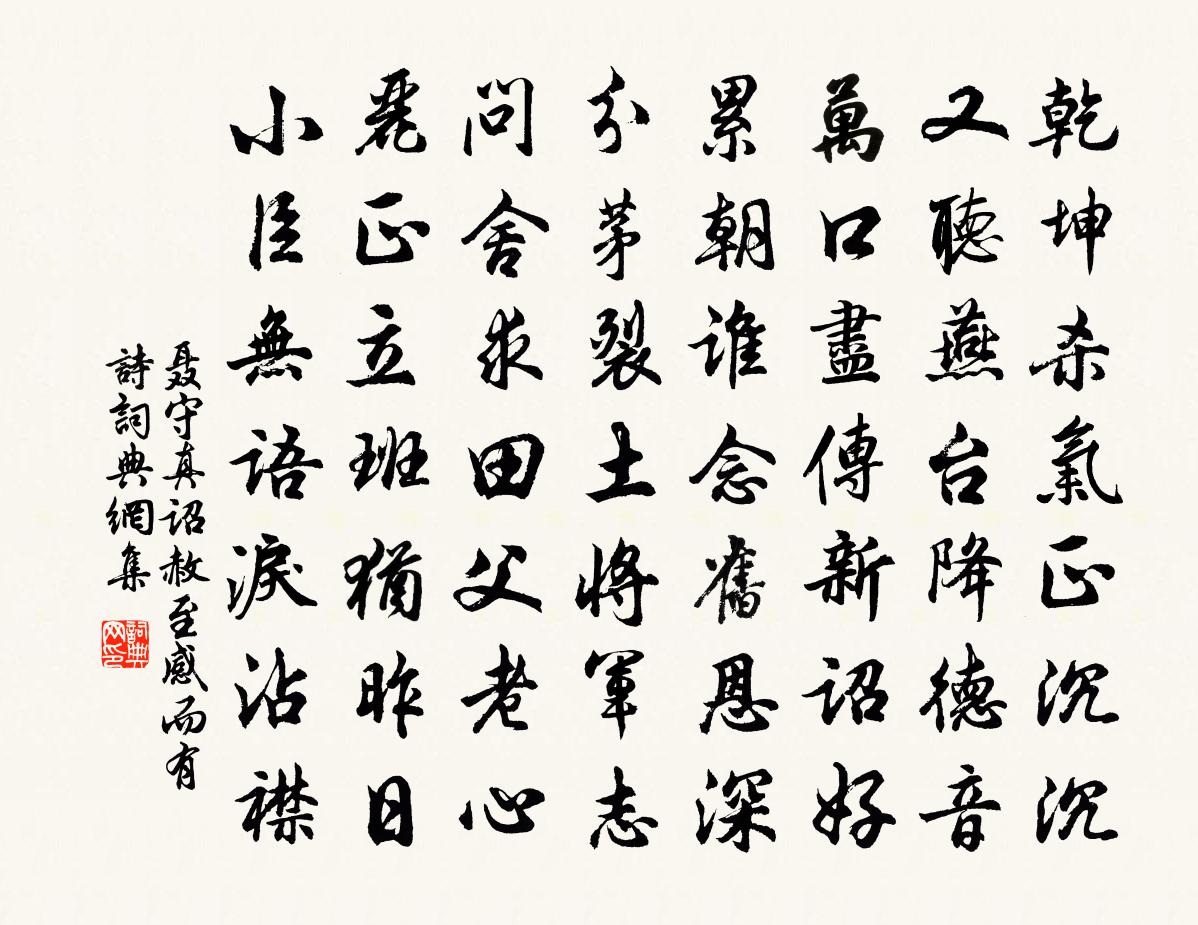 乾坤杀氣正沉沉
又聽燕台降德音
萬口盡傳新詔好
累朝誰念舊恩深
分茅裂土將軍志
問舍求田父老心
麗正立班猶昨日
小臣無語淚沾襟
聂守真詔赦至感而有
詩詞典網集
詞典网印